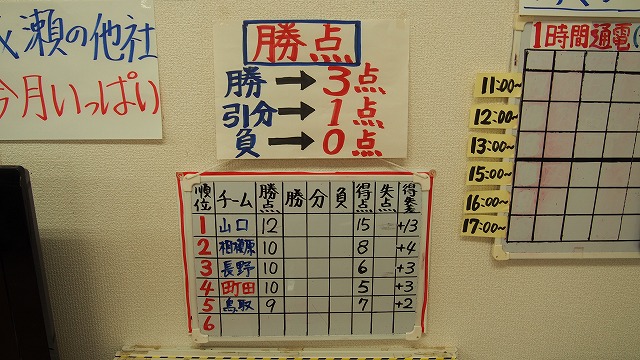 瀬の他社
今月いっぱい
勝点
勝→3点
引分→1点
負→0点
順位 チーム 勝点 勝 分 負 得点 失点 得失差
1 山口 12 15 +13
2 相模原 10 8 +4
3 長野 10 6 +3
4 町田 10 5 +3
5 鳥取 9 7 +2
6
1時間通電
11:00~
12:00~
13:00~
15:00~
16:00~
17:00~